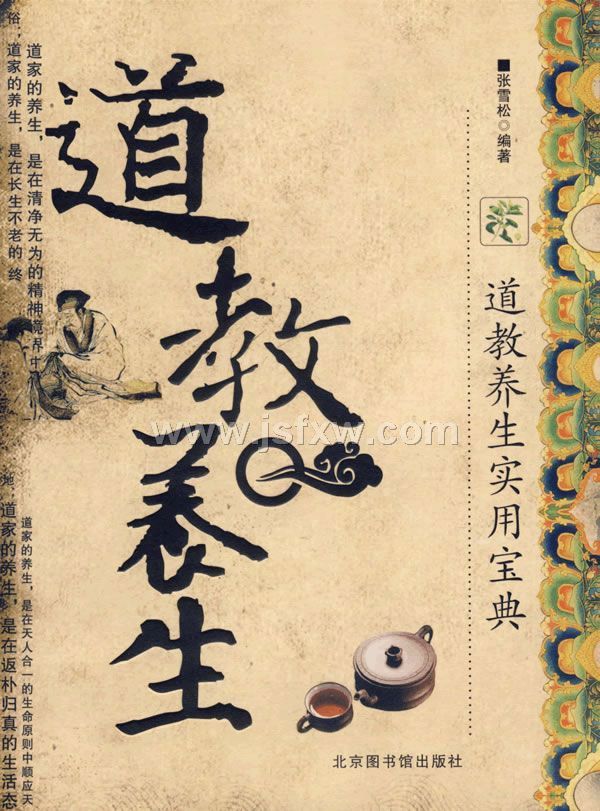 道教养生
■张雪松◎编著
道教养生实用宝典
俗，道家的养生，是在长生不老的 终
道家的养生，是在清净无为的精神境界中
地；道家的养生，是在返朴归真的生活态
道家的养生，是在天人合一的生命原则中顺应天
www.jsfxw.com
北京图书馆出版社